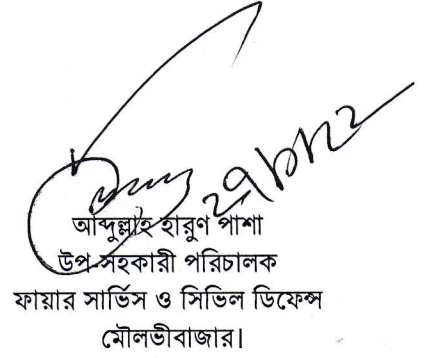 আব্দুল্লাহ হারুণ পাশা
উপ-সহকারী পরিচালক
ফায়ার সার্ভিস ও সিভিল ডিফেন্স
মৌলভীবাজার।